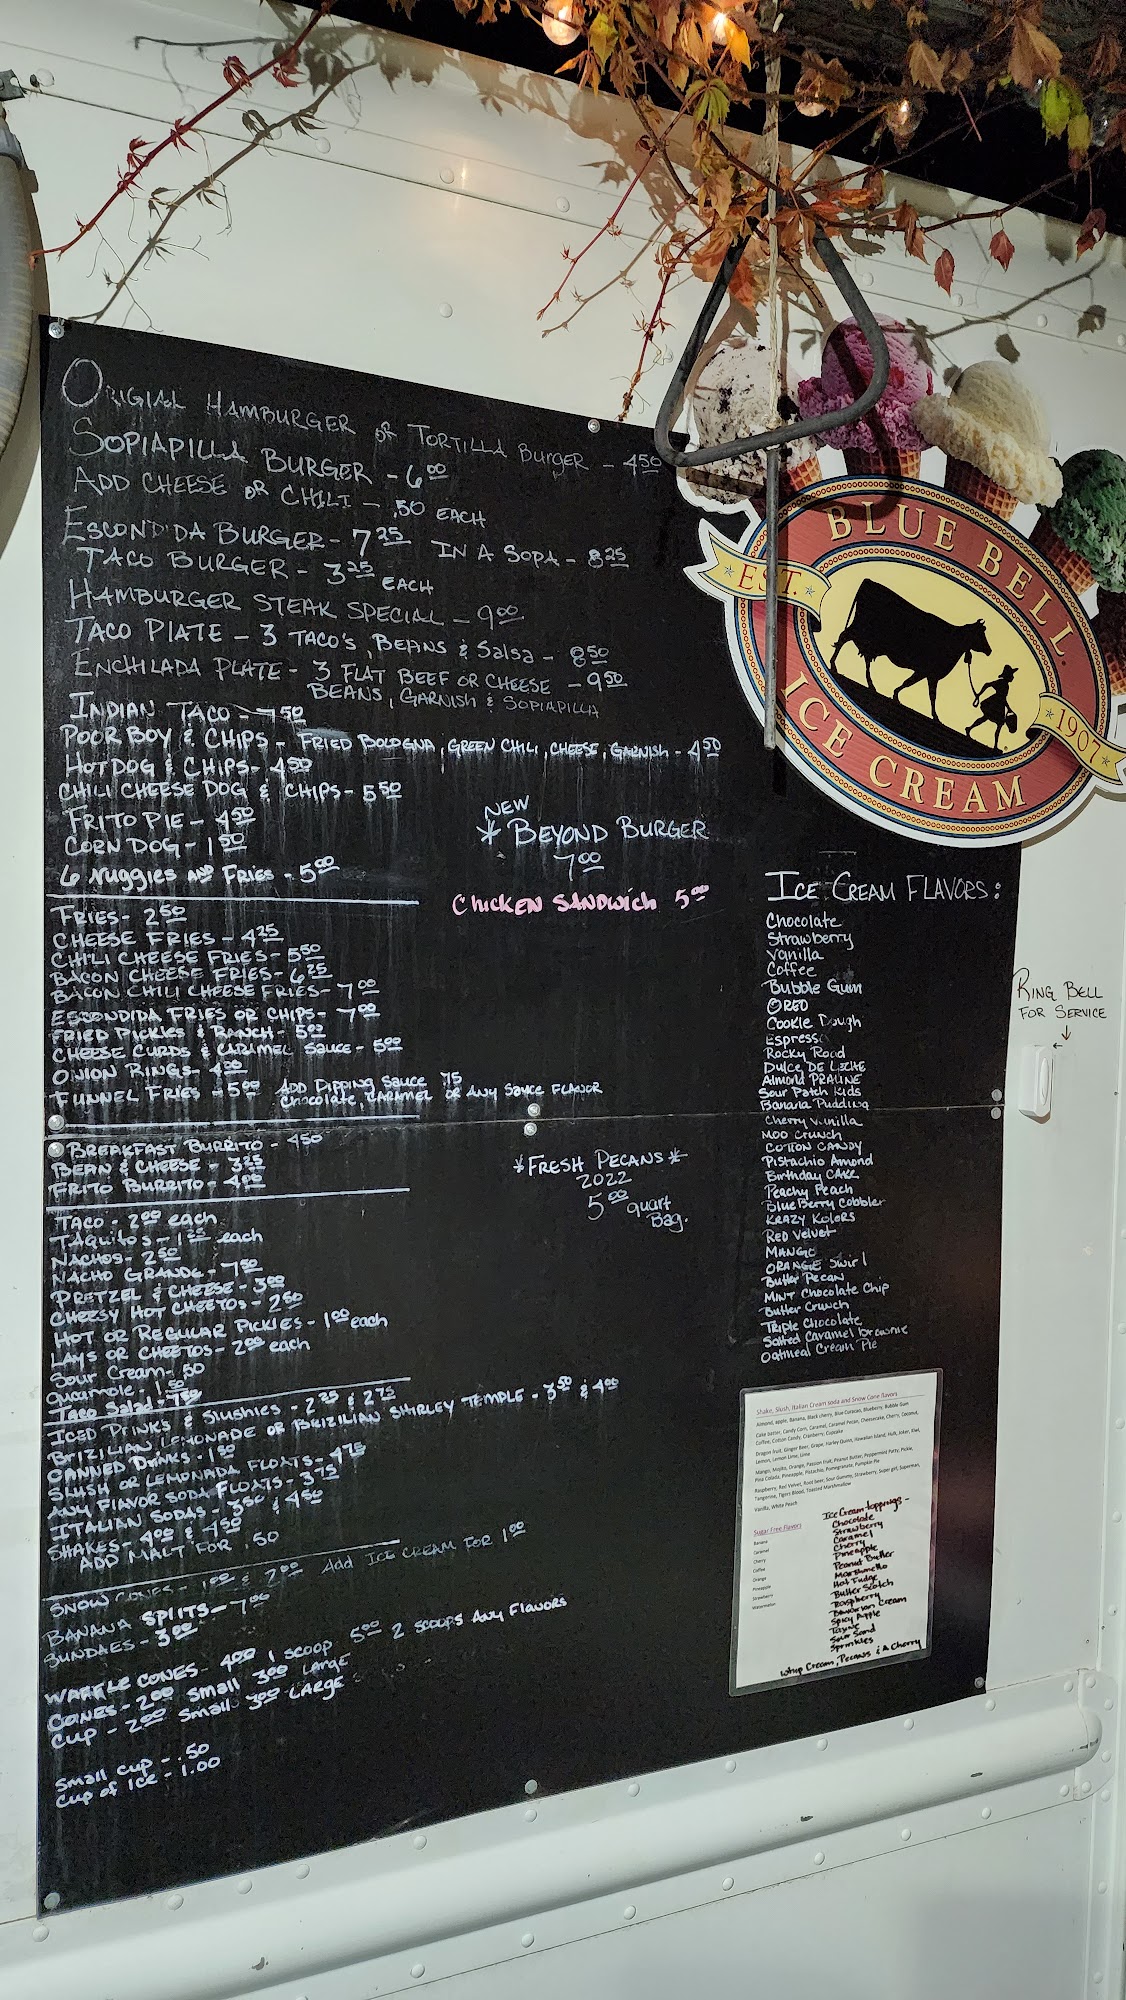 ORIGIAL HAMBURGER OR TORTILLA BURGER - 4 50
SOPIAPILLA BURGER - 6 00
ADD CHEESE OR CHILI - .50 EACH
ESCONDIDA BURGER - 7 25 IN A SOPA - 8 25
TACO BURGER - 3 25 EACH
HAMBURGER STEAK SPECIAL - 9 00
TACO PLATE - 3 TACO'S, BEANS & Salsa - 8 50
ENCHILADA PLATE - 3 FLAT BEEF OR CHEESE - 9 50
BEANS, GARNISH & SOPIAPILLA
INDIAN TACO - 7 50
POOR BOY & CHIPS - FRIED BOLOGNA, GREEN CHILI, CHEESE, GARNISH - 4 50
HOTDOG & CHIPS - 4 50
CHILI CHEESE DOG & CHIPS - 5 50
FRITO PIE - 4 50
CORN DOG - 1 50
6 Nuggies AND FRIES - 5 00
NEW
* BEYOND BURGER
7 00
CHICKEN SANDWICH 5 00
FRIES - 2 50
CHEESE FRIES - 4 25
CHILI CHEESE FRIES - 5 50
BACON CHEESE FRIES - 6 25
BACON CHILI CHEESE FRIES - 7 00
ESCONDIDA FRIES OR CHIPS - 7 00
FRIED PICKLES & RANCH - 5 00
CHEESE CURDS & CARAMEL SAUCE - 5 00
ONION RINGS - 4 00
FUNNEL FRIES - 5 00 ADD DIPPING SAUCE .75
Chocolate, CARAMEL OR ANY SAUCE FLAVOR
BREAKFAST BURRITO - 4 50
BEAN & CHEESE - 3 25
FRITO BURRITO - 4 00
*FRESH PECANS*
2022
5 00 quart
Bag.
TACO - 2 00 each
TAQUITOS - 1 25 each
NACHOS - 2 50
NACHO GRANDE - 7 50
PRETZEL & CHEESE - 3 00
CHEESY HOT CHEETOS - 2 50
HOT OR REGULAR PICKLES - 1 00 each
LAYS OR CHEETOS - 2 00 each
Sour Cream - .50
Guacmole - 1 50
Taco Salad - 7 50
ICED DRINKS & Slushies - 2 25 & 2 75
BRIZILIAN LEMONADE OR BRIZILIAN SHIRLEY TEMPLE - 3 50 & 4 00
CANNED DRINKS - 1 50
SLUSH OR LEMONADA FLOATS - 4 75
ANY FLAVOR SODA FLOATS - 3 75
ITALIAN SODAS - 3 50 & 4 50
SHAKES - 4 00 & 4 50
ADD MALT FOR .50
SNOW CONES - 1 00 & 2 00 Add ICE CREAM FOR 1 00
BANANA SPLITS - 7 00
SUNDAES - 3 00
WAFFLE CONES - 4 00 1 SCOOP 5 00 2 SCOOPS Any Flavors
CONES - 2 00 Small 3 00 LARGE
CUP - 2 00 Small 3 00 LARGE
Small Cup - .50
Cup of Ice - 1.00
BLUE BELL
EST. 1907
ICE CREAM
ICE CREAM FLAVORS:
Chocolate
Strawberry
Vanilla
Coffee
Bubble Gum
OREO
Cookie Dough
Espresso
Rocky Road
Dulce DE LECHE
Almond PRALINE
Sour Patch Kids
Banana Pudding
Cherry Vanilla
MOO Crunch
COTTON CANDY
Pistachio Amond
Birthday CAKE
Peachy Peach
BlueBerry Cobbler
KRAZY KOLORS
Red Velvet
MANGO
ORANGE Swirl
Butter Pecan
MINT Chocolate Chip
Butter Crunch
Triple Chocolate
Salted Caramel brownie
Oatmeal Cream Pie
RING BELL
FOR SERVICE
Shake, Slush, Italian Cream soda and Snow Cone flavors
Almond, apple, Banana, Black cherry, Blue Curacao, Blueberry, Bubble Gum
Cake batter, Candy Corn, Caramel, Caramel Pecan, Cheesecake, Cherry, Coconut,
Coffee, Cotton Candy, Cranberry, Cupcake
Dragon fruit, Ginger Beer, Grape, Harley Quinn, Hawaiian Island, Hulk, Joker, Kiwi,
Lemon, Lemon Lime, Lime
Mango, Mojito, Orange, Passion fruit, Peanut Butter, Peppermint Patty, Pickle,
Pina Colada, Pineapple, Pistachio, Pomegranate, Pumpkin Pie
Raspberry, Red Velvet, Root beer, Sour Gummy, Strawberry, Super girl, Superman,
Tangerine, Tigers Blood, Toasted Marshmallow
Vanilla, White Peach
Sugar Free Flavors
Banana
Caramel
Cherry
Coffee
Orange
Pineapple
Strawberry
Watermelon
Ice Cream toppings -
Chocolate
Strawberry
Caramel
Cherry
Pineapple
Peanut Butter
Marshmello
Hot Fudge
Butter Scotch
Raspberry
Bavarian Cream
Spicy Apple
Tajine
Sour Sand
Sprinkles
Whip Cream, Pecans & A Cherry